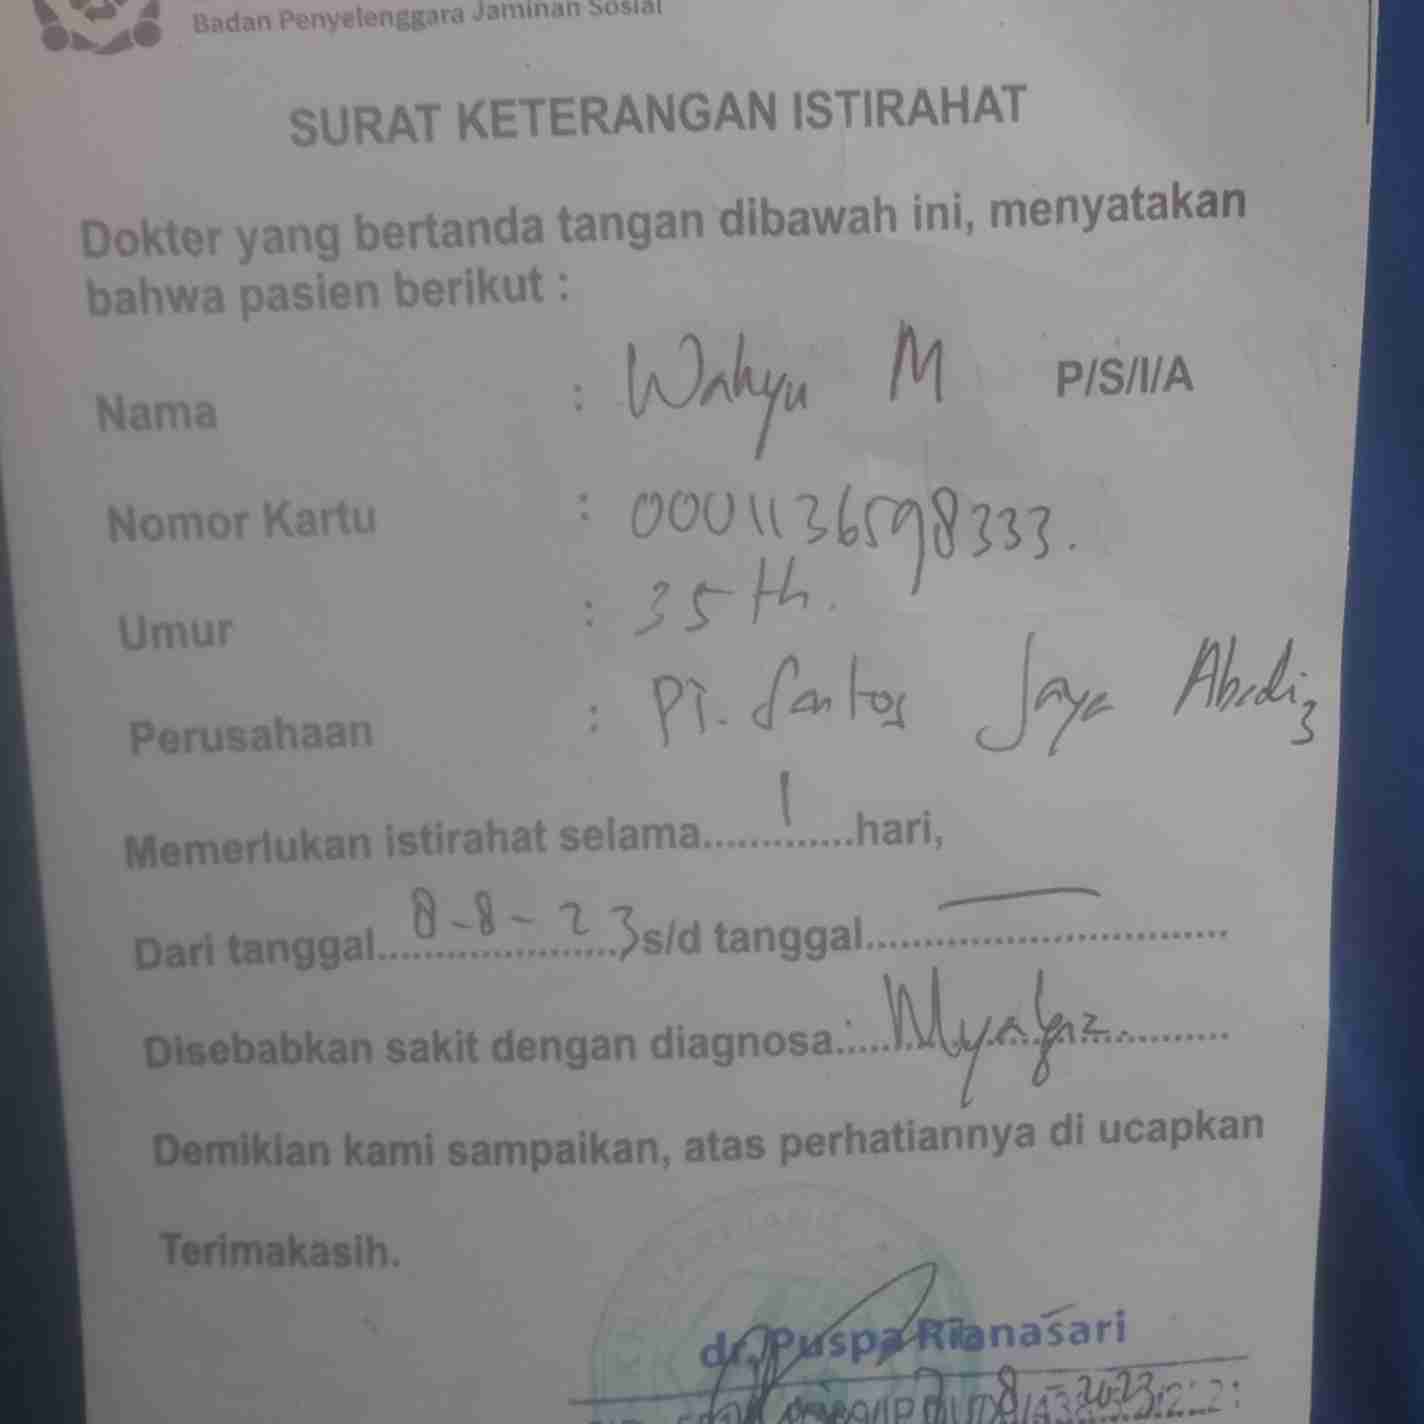 Badan Penyelenggara Jaminan Sosial
SURAT KETERANGAN ISTIRAHAT
Dokter yang bertanda tangan dibawah ini, menyatakan
bahwa pasien berikut :
Nama : Wahyu M P/S/I/A
Nomor Kartu : 0001136598333.
Umur : 35 th.
Perusahaan : PT. Santos Jaya Abadi
Memerlukan istirahat selama............1............hari,
Dari tanggal....8-8-23....s/d tanggal....—....
Disebabkan sakit dengan diagnosa:....Myalgia....
Demikian kami sampaikan, atas perhatiannya di ucapkan
Terimakasih.
dr. Puspa Rianasari